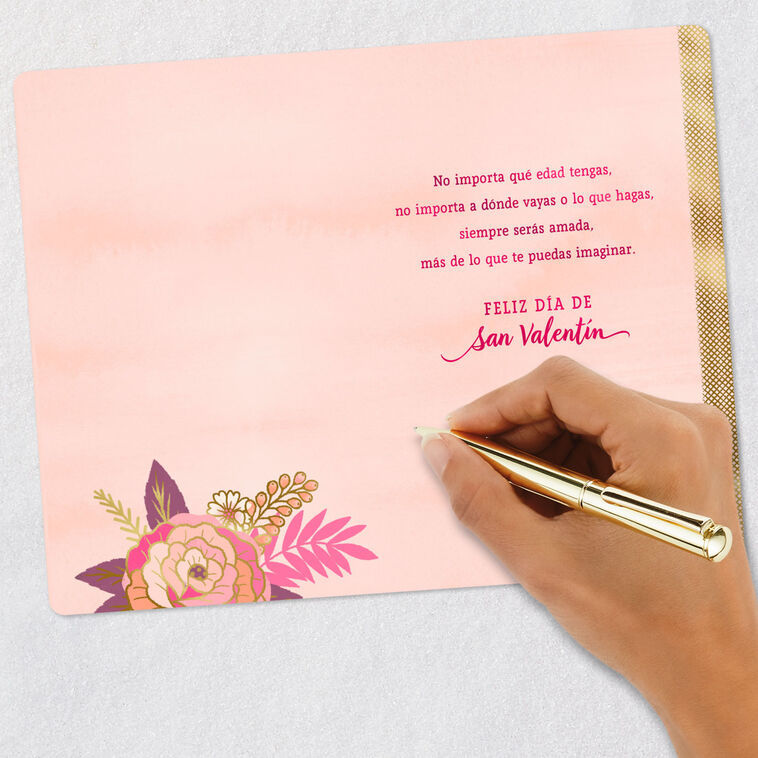 No importa qué edad tengas,
no importa a dónde vayas o lo que hagas,
siempre serás amada,
más de lo que te puedas imaginar.
FELIZ DÍA DE
San Valentín